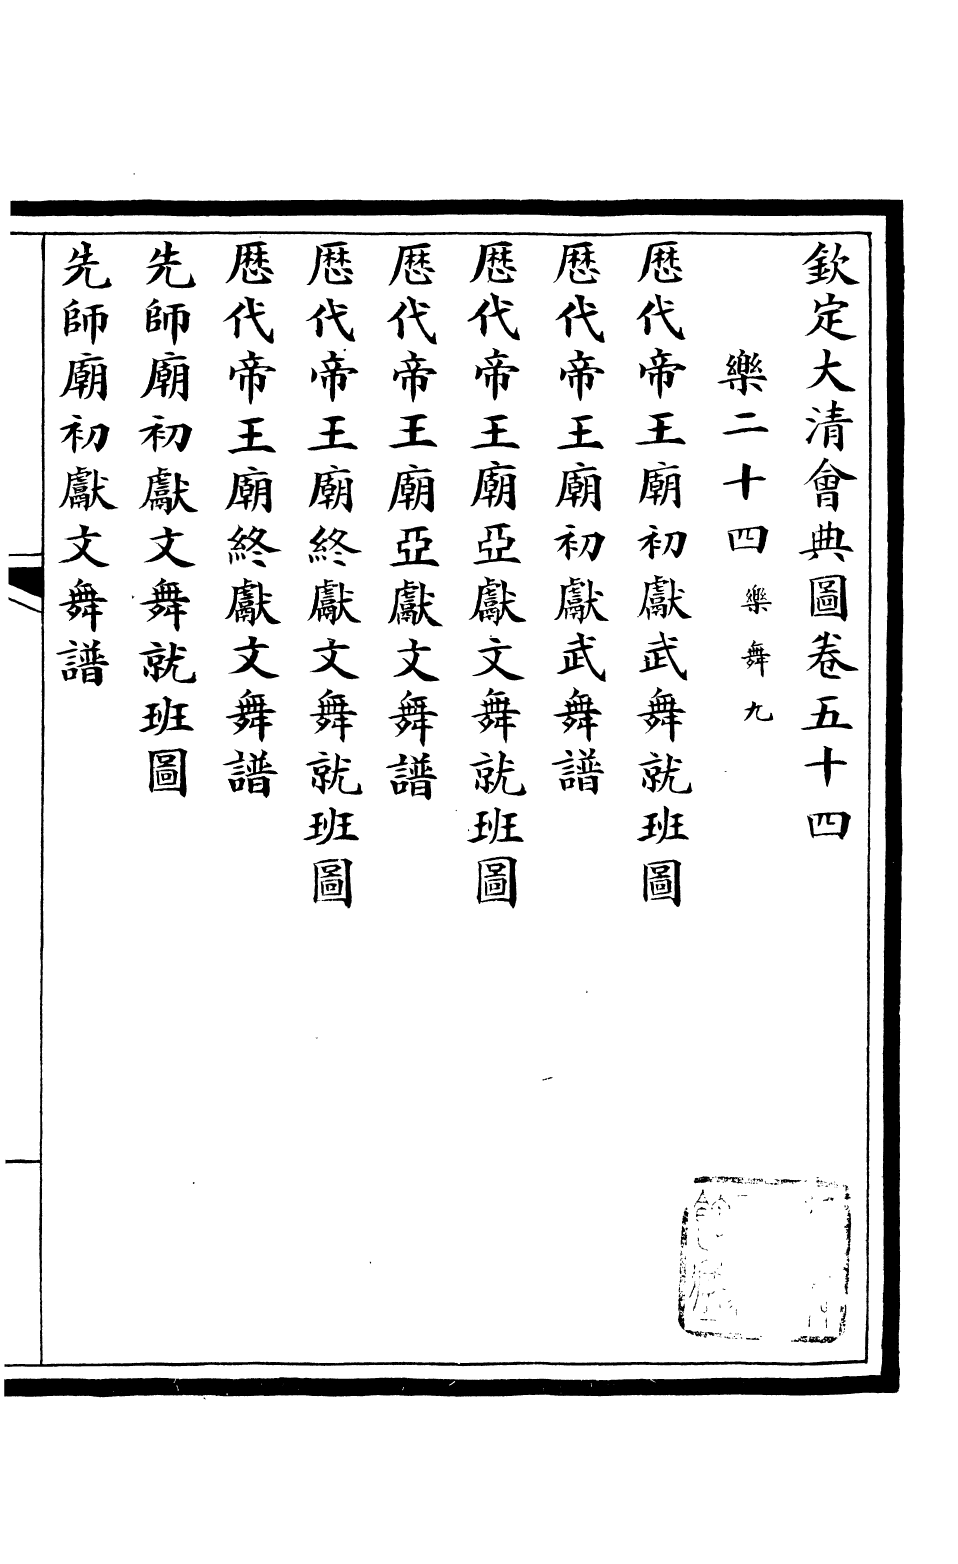 欽定大清會典圖卷五十四
樂二十四樂舞九
歷代帝王廟初獻武舞就班圖
歷代帝王廟初獻武舞譜
歷代帝王廟亞獻文舞就班圖
歷代帝王廟亞獻文舞譜
歷代帝王廟終獻文舞就班圖
歷代帝王廟終獻文舞譜
先師廟初獻文舞就班圖
先師廟初獻文舞譜